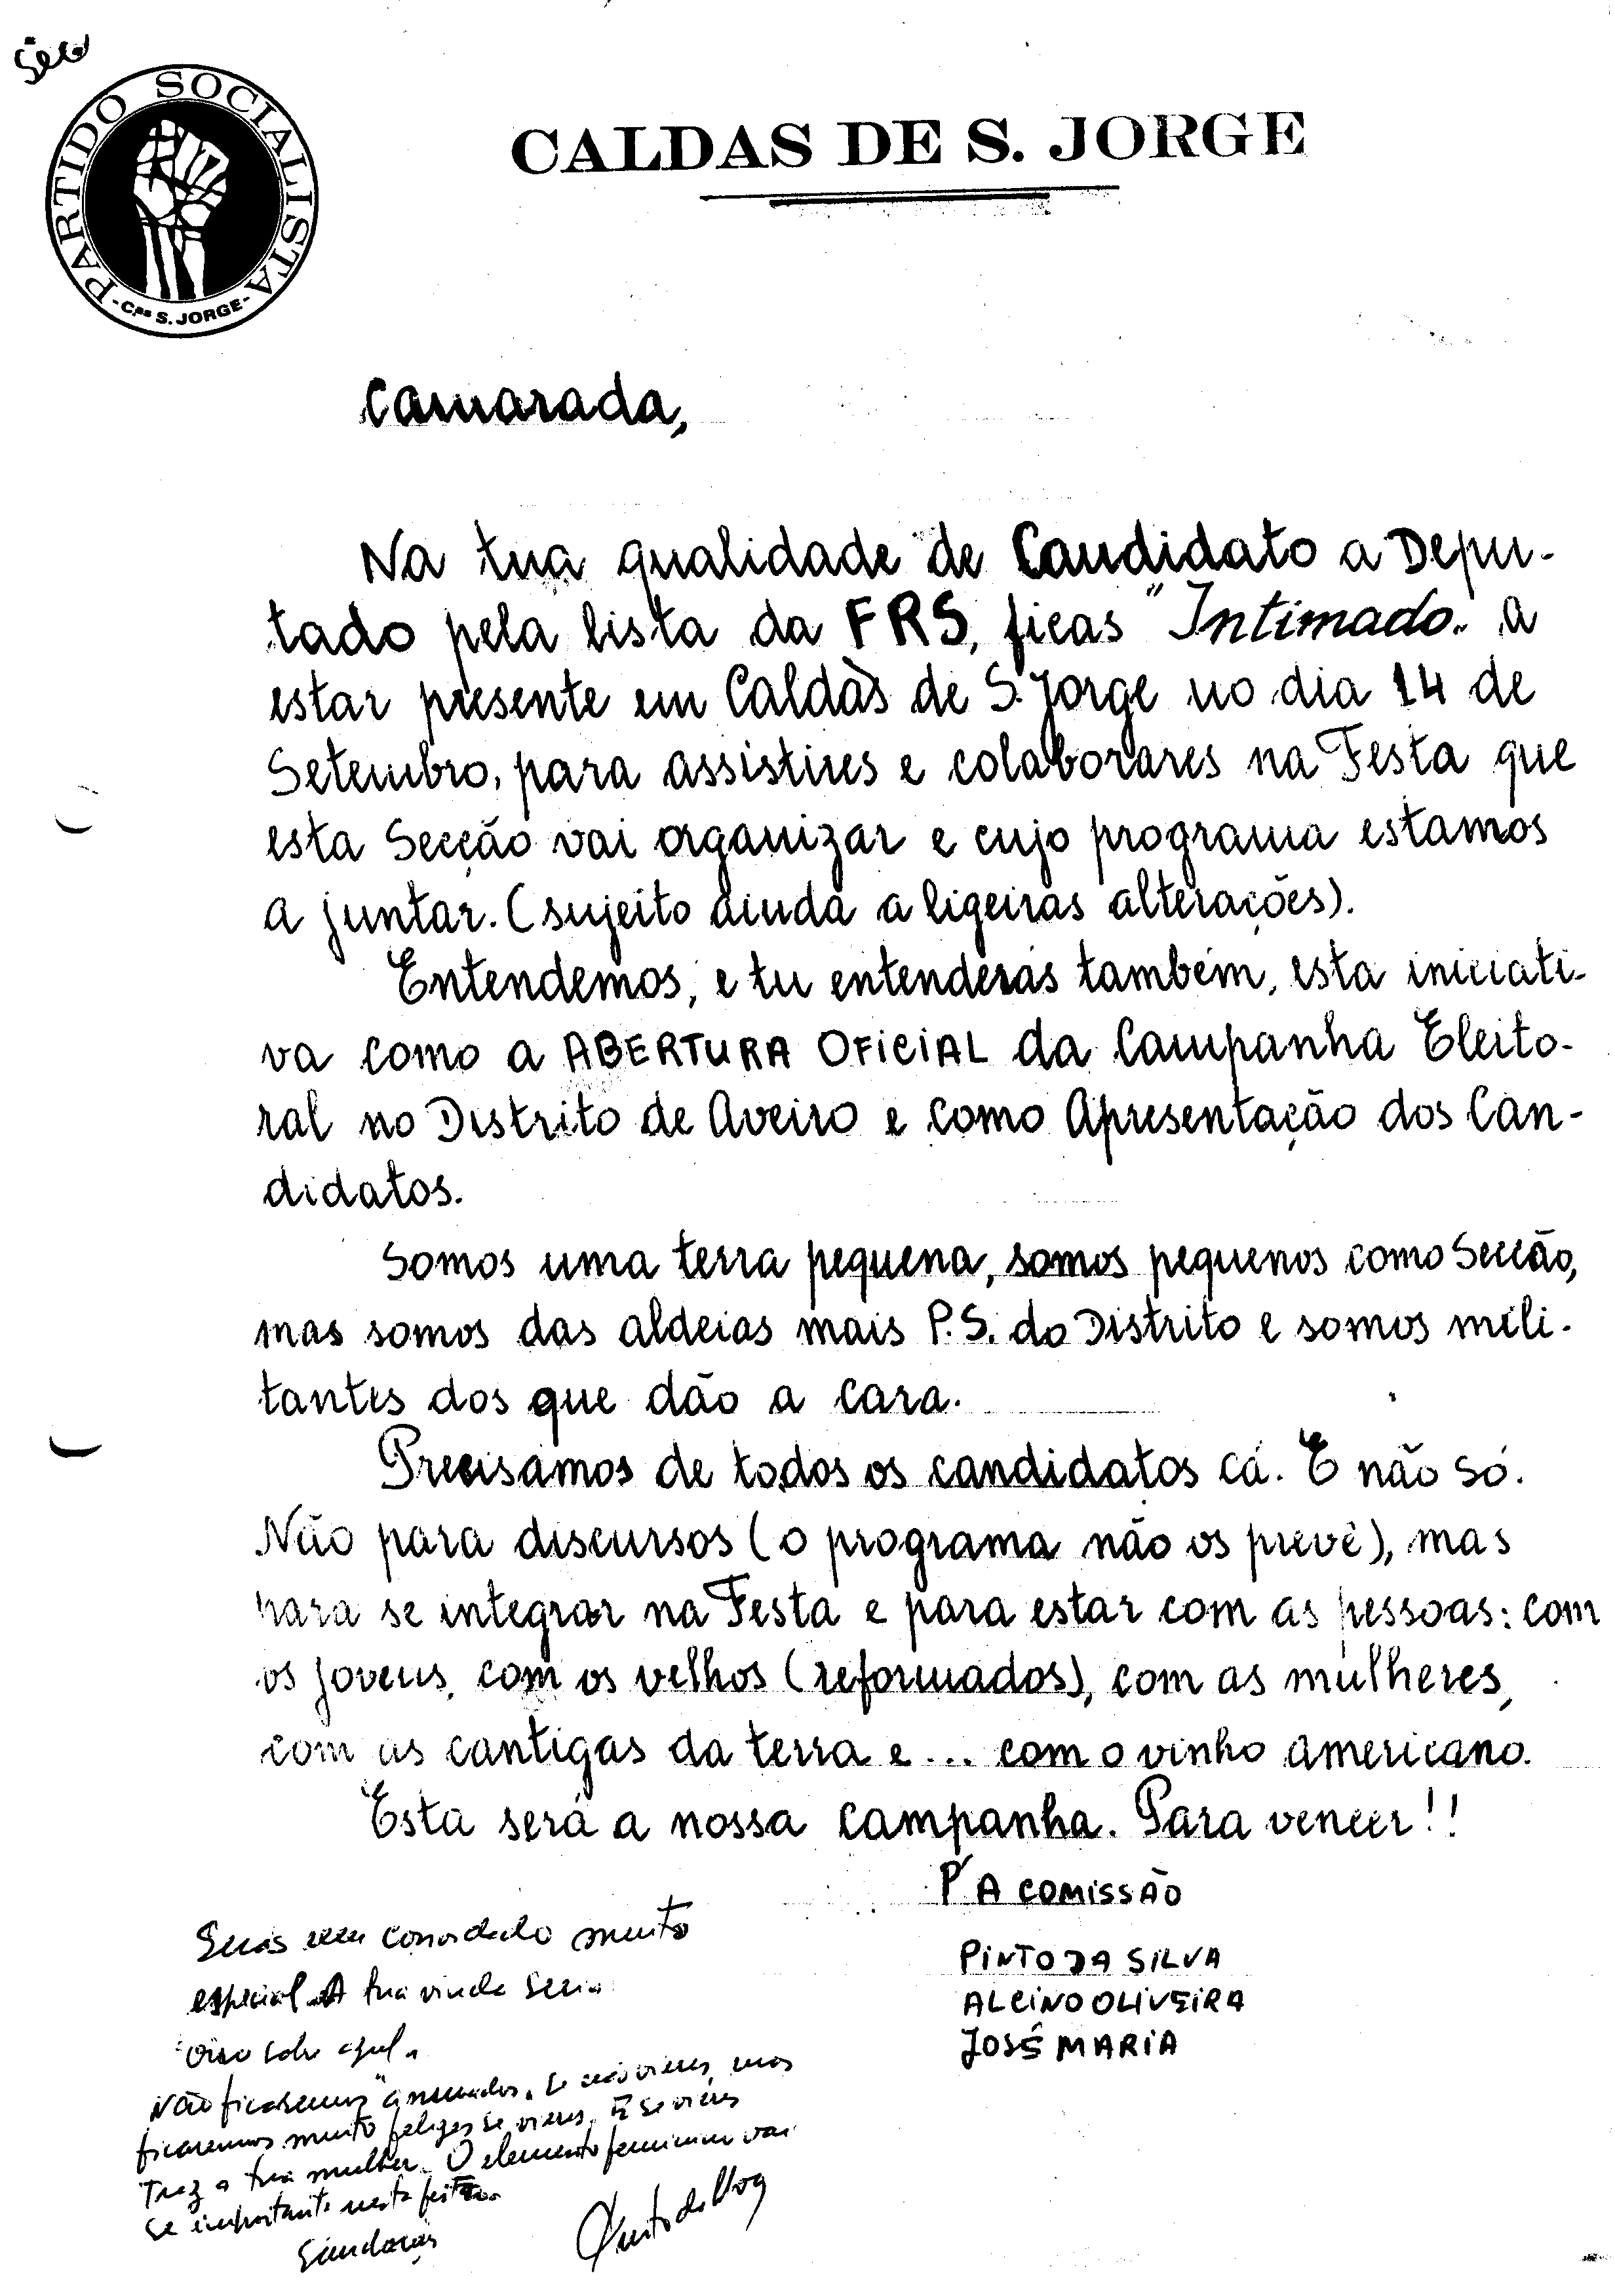 PARTIDO SOCIALISTA
- C.as S. JORGE -
CALDAS DE S. JORGE
Camarada,
Na tua qualidade de Candidato a Depu-
tado pela lista da FRS, ficas "Intimado" a
estar presente em Caldas de S. Jorge no dia 14 de
Setembro, para assistires e colaborares na Festa que
esta Secção vai organizar e cujo programa estamos
a juntar. (sujeito ainda a ligeiras alterações).
Entendemos, e tu entenderás também, esta iniciati-
va como a ABERTURA OFICIAL da Campanha Eleito-
ral no Distrito de Aveiro e como Apresentação dos Can-
didatos.
Somos uma terra pequena, somos pequenos como Secção,
mas somos das aldeias mais P.S. do Distrito e somos mili-
tantes dos que dão a cara.
Precisamos de todos os candidatos cá. E não só.
Não para discursos (o programa não os prevê), mas
para se integrar na Festa e para estar com as pessoas: com
os jovens, com os velhos (reformados), com as mulheres,
com as cantigas da terra e... com o vinho americano.
Esta será a nossa campanha. Para vencer!!
P'A COMISSÃO
PINTO DA SILVA
ALCINO OLIVEIRA
JOSÉ MARIA
Serás um convidado muito
especial. A tua vinda seria
"ouro sobre azul".
Não ficaremos se não vieres, mas
ficaremos muito felizes se vieres. E se vieres
Traz a tua mulher. O elemento feminino vai
se importante nesta festa.
Saudações